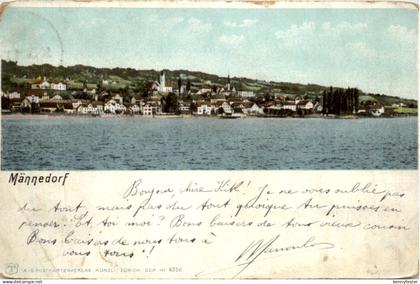 Männedorf
Bonjour, chère Kitt! Je ne vous oublie pas
du tout mais pas du tout quoique tu puisses en
penser. Et toi moi? Bons baisers de tous vieux
Bons baisers de nous tous à
vous tous!
A.-G. POSTKARTENVERLAG KÜNZLI, ZÜRICH, DEP. No 4350
kennyfester